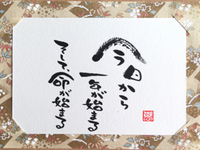 今日から
一年が始まる
そして、命が始まる